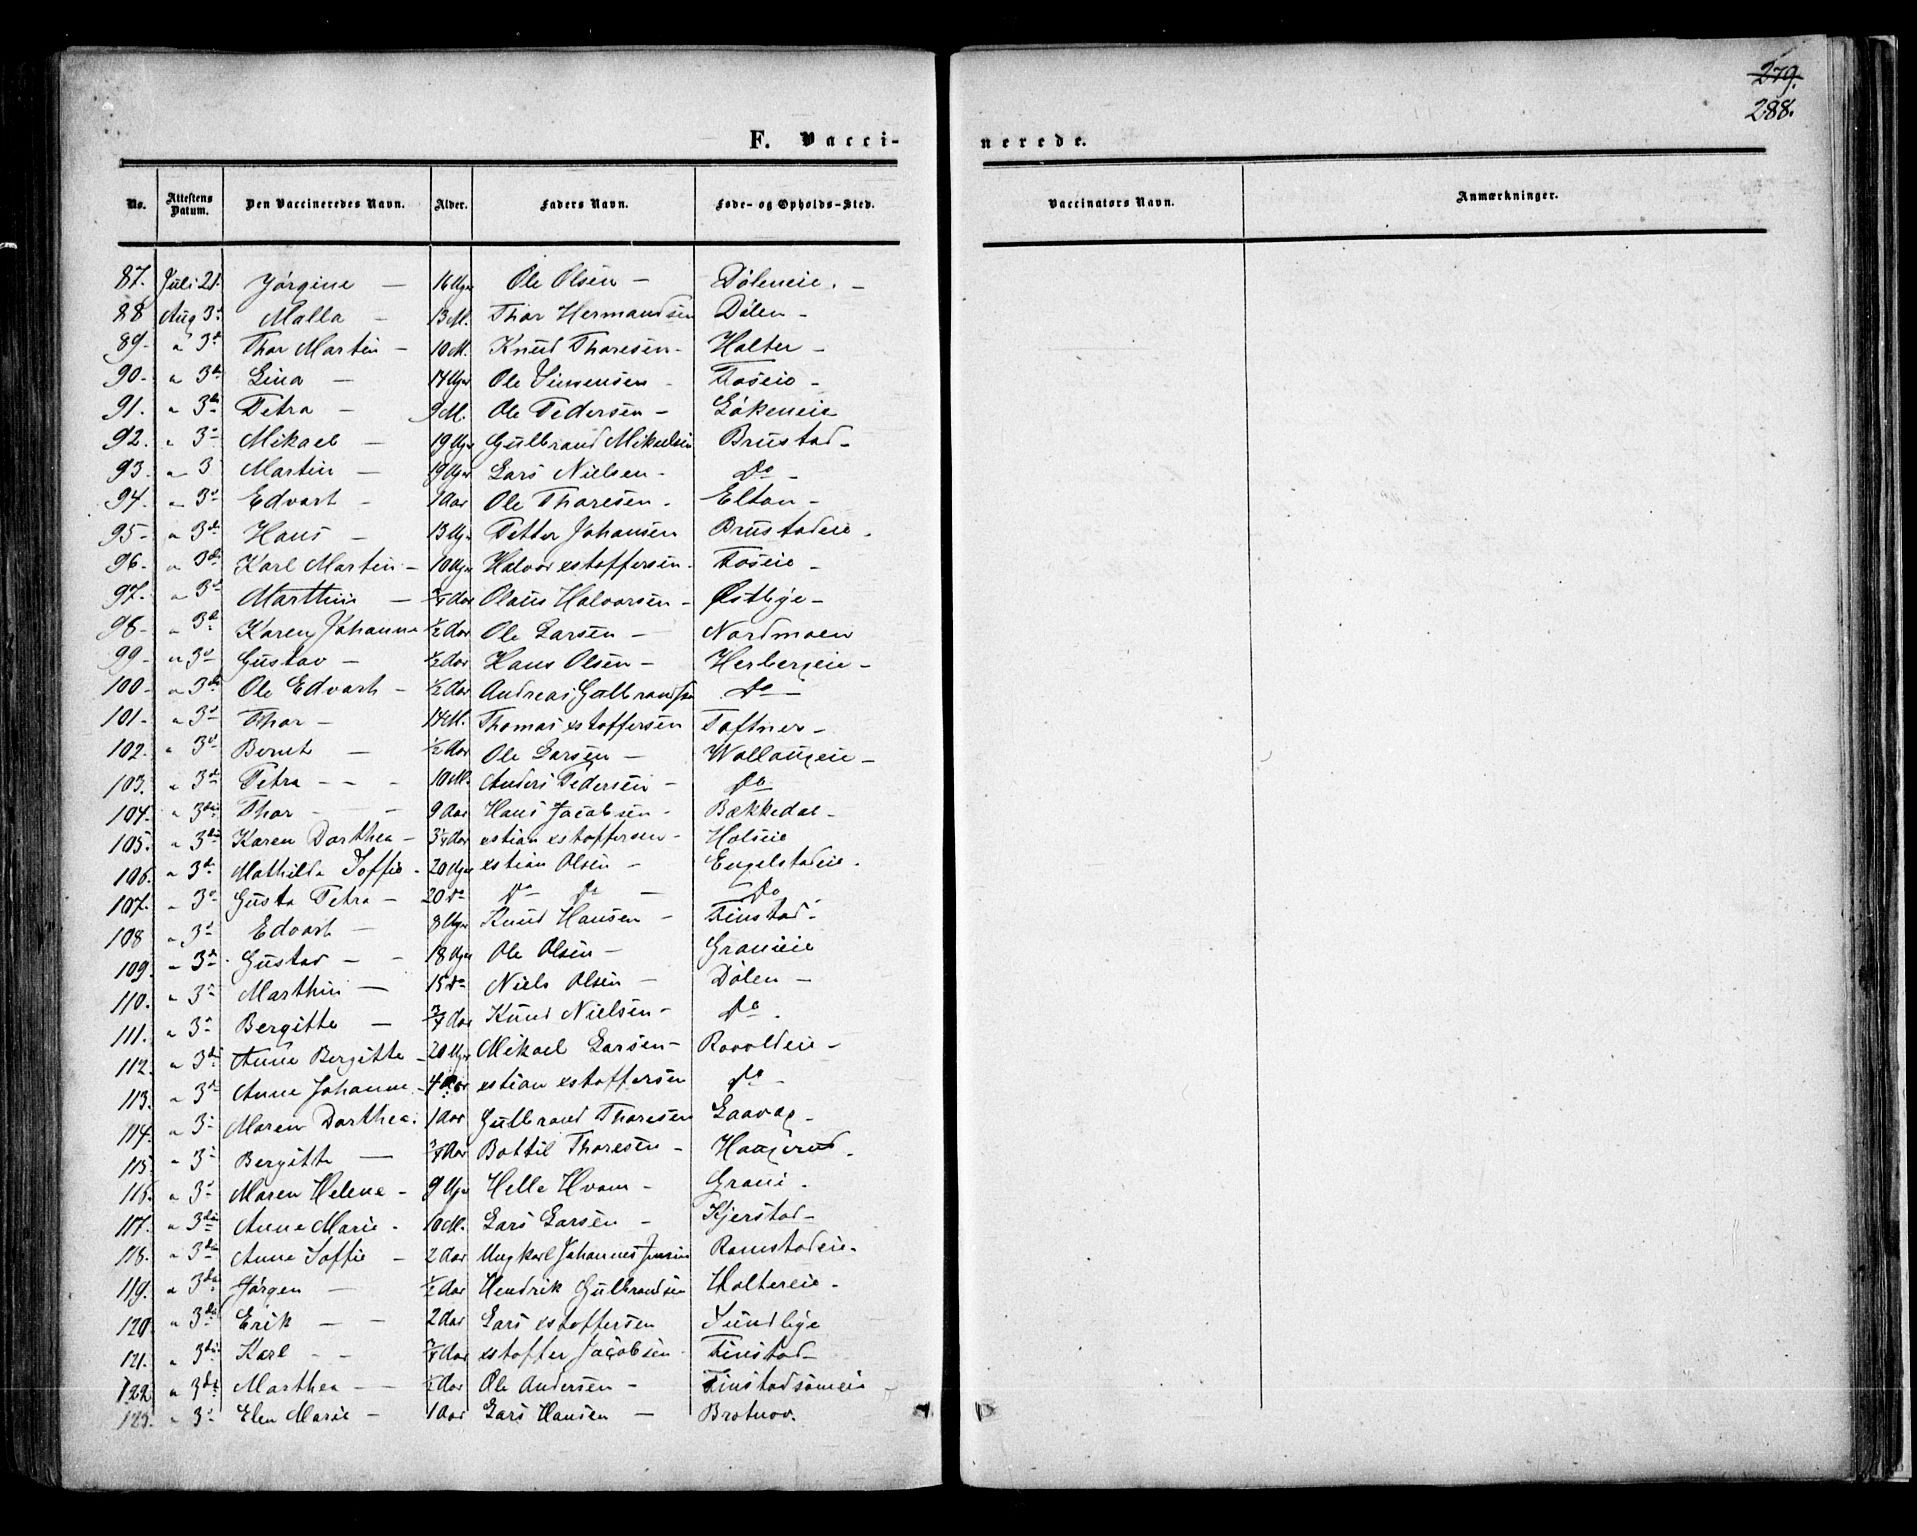 279.
288.
F. Vacci-
nerede.
No. Attestens Datum. Den Vaccineredes Navn. Alder. Faders Navn. Føde- og Opholds-Sted. Vaccinators Navn. Anmærkninger.
87. Juli 21. Jørgine — 16 Uger Ole Olsen — Døleneie. —
88 Aug 3d Malla — 13 M. Thor Hermandsen Dølen —
89. " 3d Thor Martin — 10 M. Knud Thoresen — Holter —
90. " 3d Lina — 14 Uger Ole Simensen — Foseie —
91. " 3d Petra — 9 M. Ole Pedersen — Løkeneie
92. " 3d Mikael — 19 Uger Gulbrand Mikaelsen Brustad —
93. " 3 Martin — 19 Uger Lars Nielsen — Do —
94. " 3d Edvart — 1 Aar Ole Thoresen — Eltan —
95. " 3d Hans — 13 Ug. Petter Johansen Brustadeie.
96. " 3d Karl Martin — 10 Uger Halvor xstoffersen — Foseie —
97. " 3d Marthin — 3/4 Aar Olaus Halvorsen — Østlige —
98. " 3d Karen Johanne 1/2 Aar Ole Larsen — Nordmoen
99. " 3d Gustav — 1/2 Aar Hans Olsen — Herbergeie —
100. " 3d Ole Edvart — 1/2 Aar Andreas Gulbrandsen Do —
101. " 3d Thor — 14 M. Thomas xstoffersen Toftner —
102. " 3d Bernt — 1/2 Aar Ole Larsen — Wollaugeie —
103. " 3d Petra — — 10 M. Anders Pedersen — Do
104. " 3die Thor — — 9 Aar Hans Jacobsen — Bækkedal —
105. " 3die Karen Dorthea — 3 1/4 Aar xstian xstoffersen — Holseie
106. " 3d Mathilda Soffie — 20 Uger xstian Olsen — Engelstadeie.
107. " 3d Gusta Petra — 20 do Do Do — Do
108 " 3d Edvart — 8 Uger Knud Hansen — Finstad —
109. " 3d Gustav — — 18 Uger Ole Olsen — Granieie
110. " 3d Marthin — 15 do Niels Olsen — Dølen —
111. " 3d Bergitte — 3/4 Aar Knud Nielsen — Do.
112. " 3di Anne Bergitte — 20 Uger Mikael Larsen — Rovoldeie —
113. " 3d Anne Johanne — 4 Aar xstian xstoffersen Do —
114. " 3d Maren Dorthea. 1 Aar Gulbrand Thoresen Laavag —
115. " 3d Bergitte — 3/4 Aar Bottil Thoresen — Haugerud.
116. " 3d Maren Helene — 9 Uger Helle Hvam — Grani —
117. " 3die Anne Marie — 10 M. Lars Larsen — Kjerstad —
118. " 3die Anne Soffie — 2 Aar Ungkarl Johannes Jensen Romstadeie —
119. " 3die Jørgen — 1/2 Aar Hendrik Gulbrandsen Holtereie —
120. " 3die Erik — — 2 Aar Lars xstoffersen Sundlige
121. " 3die Karl — — 3/4 Aar xstoffer Jacobsen — Finstad —
122 " 3di Marthea — 1/2 Aar Ole Andersen — Finstadsømeie —
123. " 3d Elen Marie — 1 Aar Lars Hansen — Brotnov.